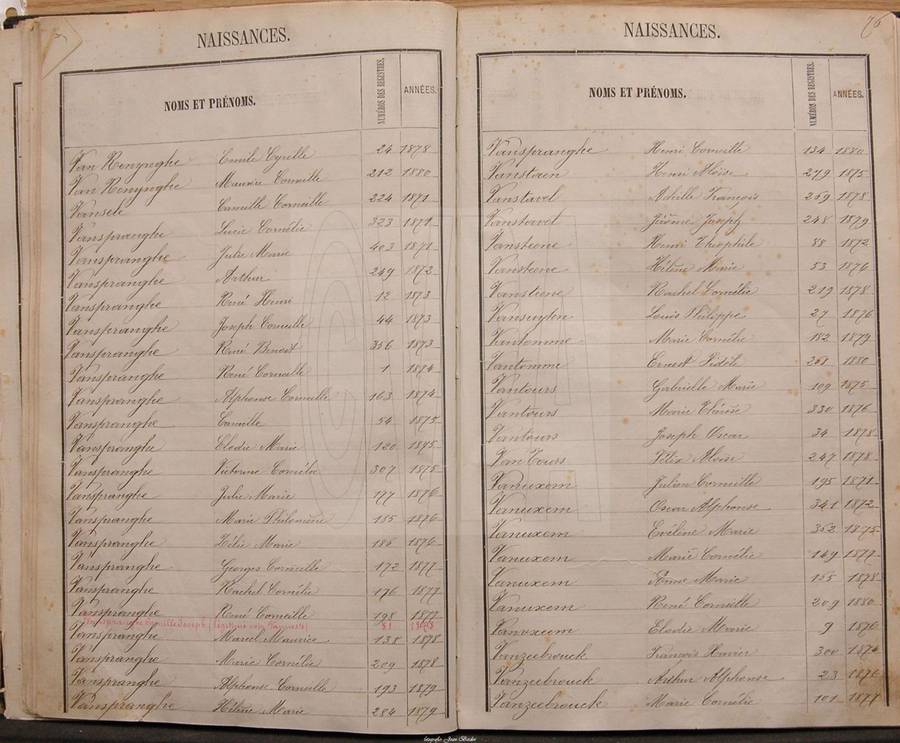 NAISSANCES.
NOMS ET PRÉNOMS.
NUMÉROS DES REGISTRES.
ANNÉES.
Van Renynghe Emile Cyrille 24 1878
Van Renynghe Maurice Corneille 212 1880
Vansele Camille Corneille 224 1871
Vanspranghe Lucie Cornélie 323 1871
Vanspranghe Julie Marie 403 1871
Vanspranghe Arthur 249 1872
Vanspranghe René Henri 12 1873
Vanspranghe Joseph Corneille 44 1873
Vanspranghe René Benoit 356 1873
Vanspranghe René Corneille 1 1874
Vanspranghe Alphonse Corneille 163 1874
Vanspranghe Camille 54 1875
Vanspranghe Elodie Marie 120 1875
Vanspranghe Victorine Cornélie 307 1875
Vanspranghe Julie Marie 177 1876
Vanspranghe Marie Philomène 185 1876
Vanspranghe Zélie Marie 186 1876
Vanspranghe Georges Corneille 172 1877
Vanspranghe Rachel Cornélie 176 1877
Vanspranghe René Corneille 198 1877
Vanspranghe Camille Joseph 51
Vanspranghe Marcel Maurice 138 1878
Vanspranghe Marie Cornélie 209 1878
Vanspranghe Alphonse Corneille 193 1879
Vanspranghe Hélène Marie 284 1879
76
NAISSANCES.
NOMS ET PRÉNOMS.
NUMÉROS DES REGISTRES.
ANNÉES.
Vanspranghe Henri Corneille 134 1880
Vanstaen Henri Aloïse 279 1875
Vanstavel Achille François 259 1878
Vanstavel Jérôme Joseph 248 1879
Vansteene Henri Théophile 88 1872
Vansteene Hélène Marie 53 1876
Vansteene Rachel Cornélie 219 1878
Vansuyten Louis Philippe 27 1876
Vantomme Marie Cornélie 182 1877
Vantomme Ernest Fidèle 251 1880
Vantours Gabrielle Marie 109 1875
Vantours Marie 330 1876
Vantours Joseph Oscar 34 1878
Van Tours Félix Aloïse 247 1878
Vanuxem Julien Corneille 195 1871
Vanuxem Oscar Alphonse 341 1872
Vanuxem Eveline Marie 352 1875
Vanuxem Marie Cornélie 149 1877
Vanuxem Anne Marie 155 1878
Vanuxem René Corneille 209 1880
Vanuxem Elodie Marie 9 1876
Vanzeebrouck François Xavier 300 1874
Vanzeebrouck Arthur Alphonse 23 1876
Vanzeebrouck Marie Cornélie 101 1877